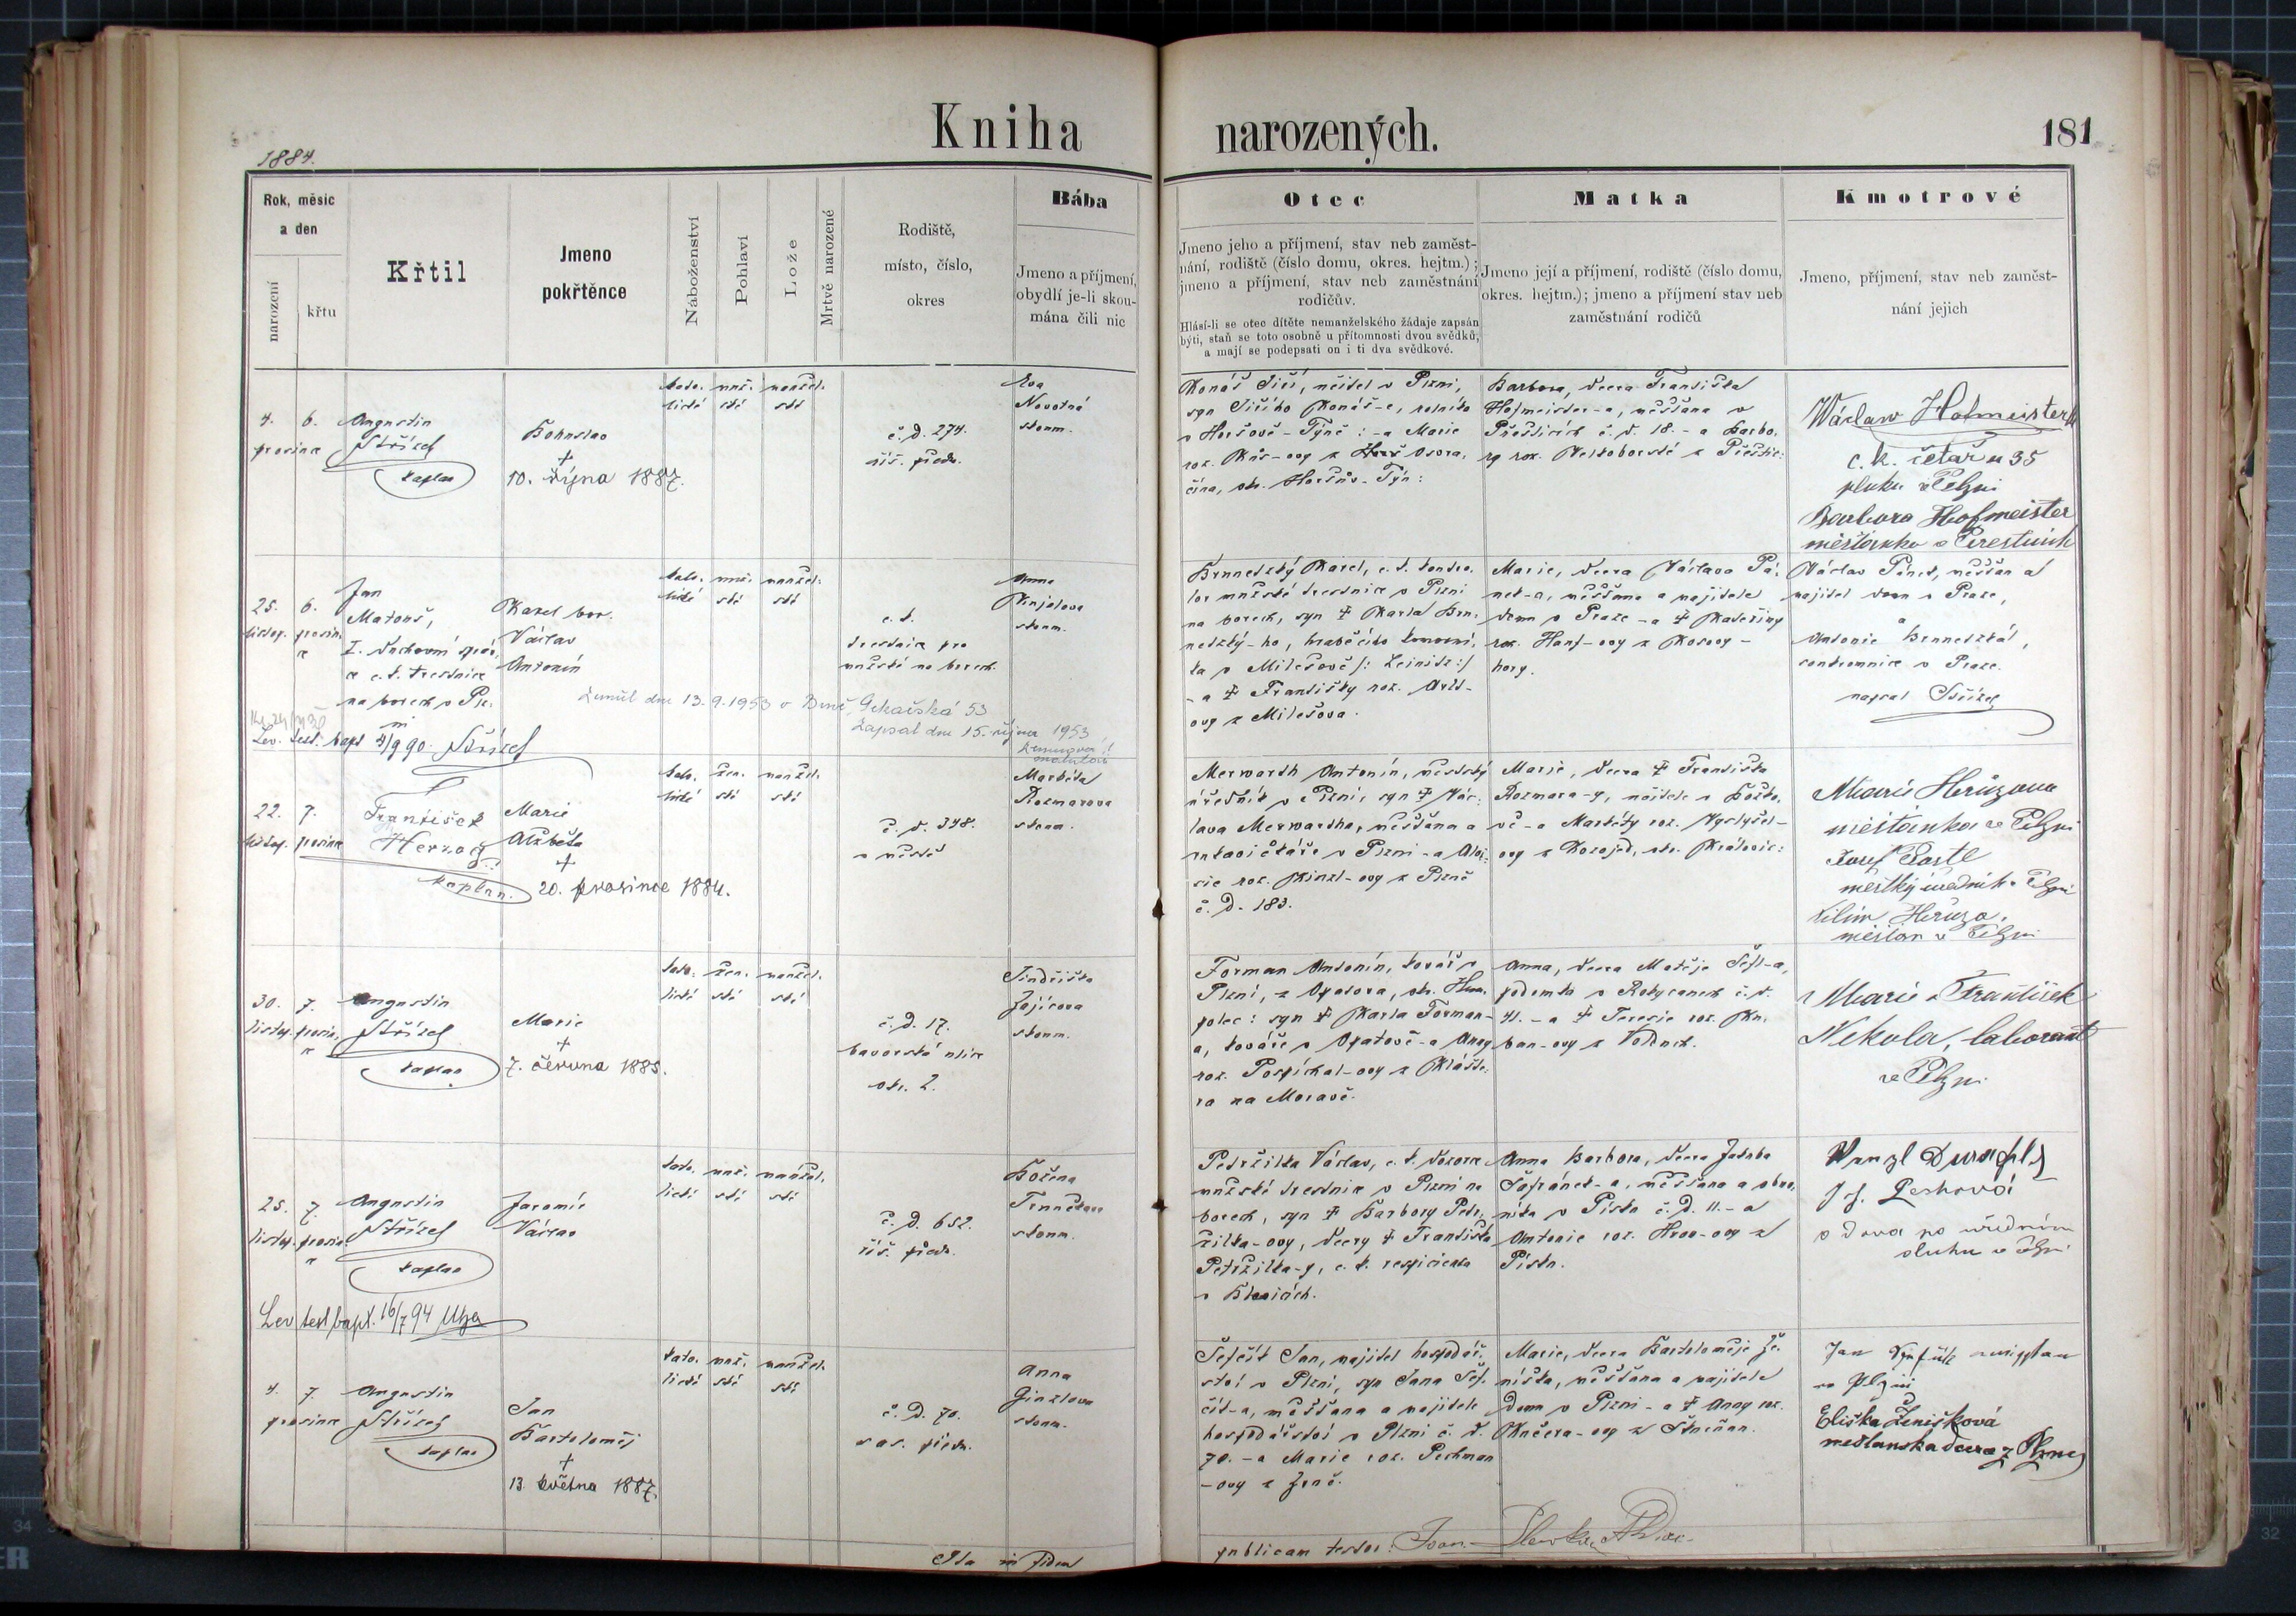 Kniha narozených.
181
1884.
Rok, měsíc
a den
narození
křtu
Křtil
Jmeno
pokřtěnce
Náboženství
Pohlaví
Lože
Mrtvě narozené
Rodiště,
místo, číslo,
okres
Bába
Jmeno a příjmení,
obydlí je-li skou-
mána čili nic
Otec
Jmeno jeho a příjmení, stav neb zaměst-
nání, rodiště (číslo domu, okres. hejtm.);
jmeno a příjmení, stav neb zaměstnání
rodičův.
Hlásí-li se otec dítěte nemanželského žádaje zapsán
býti, staň se toto osobně u přítomnosti dvou svědků,
a mají se podepsati on i ti dva svědkové.
Matka
Jmeno její a příjmení, rodiště (číslo domu,
okres. hejtm.); jmeno a příjmení stav neb
zaměstnání rodičů
Kmotrové
Jmeno, příjmení, stav neb zaměst-
nání jejich
4. 6.
prosince
Augustin
Střízek
kaplan
Bohuslav
†
10. října 1887.
kato- muž- manžel-
lické ské ské
č. d. 274.
říš. předm.
Eva
Novotná
zkoum.
Konáš Jiří, učitel v Plzni,
syn Jiřího Konáš-e, rolníka
v Horšově-Týně :- a Marie
čína, okr. Horšův-Týn:
Barbora, dcera Františka
Hofmeister-a, měšťana v
Přešticích č. d. 18. - a Barbo-
ry roz. Netoborské z Přeštic:
Václav Hofmeister
c. k. četař u 35
pluku v Plzni
Barbora Hofmeister
měšťanka v Přesticích
25. 6.
listop. prosin-
ce
Jan
Matouš,
I. duchovní správ-
ce c. k. trestnice
na borech v Plz-
ni
Karel bor.
Václav
Antonín
kato- muž- manžel-
lické ské ské
c. k.
trestnice pro
mužské na borech
Anna
zkoum.
zemřel dne 13.9.1953 v Brně, Pekařská 53
Zapsal dne 15. října 1953
Lev. test. bapt 4/9 90. Střízek
Brunetzký Karel, c. k. kontro-
lor mužské trestnice v Plzni
na borech, syn † Karla Bru-
netzký-ho, hraběcího komorní-
ka v Milešově /: Leinitz:/
- a † Františky roz.
ovy z Milešova.
Marie, dcera Václava Pá-
nek-a, měšťana a majitele
domu v Praze - a † Kateřiny
roz. Hanf-ovy z Kosovy-
hory.
Václav Pánek, měšťan a
majitel domu v Praze,
a
Antonie Brunetzká,
soukromnice v Praze.
napsal Střízek
22. 7.
listop. prosince
František
Herzog
kaplan.
Marie
Alžběta
†
20. prosince 1884.
kato- žen- manžel-
lické ské ské
č. d. 348.
v městě
Markéta
Rozmarova
zkoum.
Merwarth Antonín, městský
úředník v Plzni, syn † Vác-
lava Merwartha, měšťana a
rukavičkáře v Plzni - a Aloi-
sie roz. Kinzl-ovy z Plzně
č. d. 183.
Marie, dcera † Františka
Rozmara-y, učitele v Božko-
vě - a Markéty roz. Vyslyšel-
ovy z Kozojed, okr. Kralovic:
Marie Herůzova
měšťanka v Plzni
Josef Pastl
městský úředník v Plzni
Vilím Herůza,
měšťan v Plzni
30. 7.
listop. prosin-
ce
Augustin
Střízek
kaplan
Marie
†
7. června 1885.
kato- žen- manžel-
lické ské ské
č. d. 17.
bavorská ulice
okr. 2.
Jindřiška
Zajícova
zkoum.
Forman Antonín, kovář v
Plzni, z Opatova, okr. Hum-
polec: syn † Karla Forman-
a, kováře v Opatově - a Anny
roz. Pospíchal-ovy z Klášte-
ra na Moravě.
Anna, dcera Matěje Šefl-a,
podomka v Rokycanech č. d.
41. - a † Terezie roz. Ku-
ban-ovy z Vodnek.
Marie a František
Nekola, laborant
v Plzni
25. 7.
listop. prosin-
ce
Augustin
Střízek
kaplan
Jaromír
Václav
kato- muž- manžel-
lické ské ské
č. d. 652.
říš. předm.
Božena
Trnečkova
zkoum.
Lev test bapt. 16/7 94
Petržilka Václav, c. k. dozorce
mužské trestnice v Plzni na
borech, syn † Barbory Petr-
žilka-ovy, dcery † Františka
Petržilka-y, c. k. respicienta
v Blovicích.
Anna Barbora, dcera Jakuba
Šafránek-a, měšťana a obuv-
níka v Písku č. d. 11. - a
Antonie roz. Hrov-ovy z
Písku.
J. Peshová
vdova po úředním
sluhu v Plzni
4. 7.
prosince
Augustin
Střízek
kaplan
Jan
Bartoloměj
†
13. května 1887.
kato- muž- manžel-
lické ské ské
č. d. 70.
sas. předm.
Anna
Ginzlova
zkoum.
Šefčít Jan, majitel hospodář-
ství v Plzni, syn Jana Šef-
čít-a, měšťana a majitele
hospodářství v Plzni č. d.
70. - a Marie roz. Pechman
-ovy z Zruč.
Marie, dcera Bartoloměje Že-
níška, měšťana a majitele
domu v Plzni - a † Anny roz.
Kučera-ovy z Štěnovic.
Jan
na Plzni
Eliška Ženíšková
měšťanska dcera z Plzně
Ita in fidem
publicam testor: Joan.